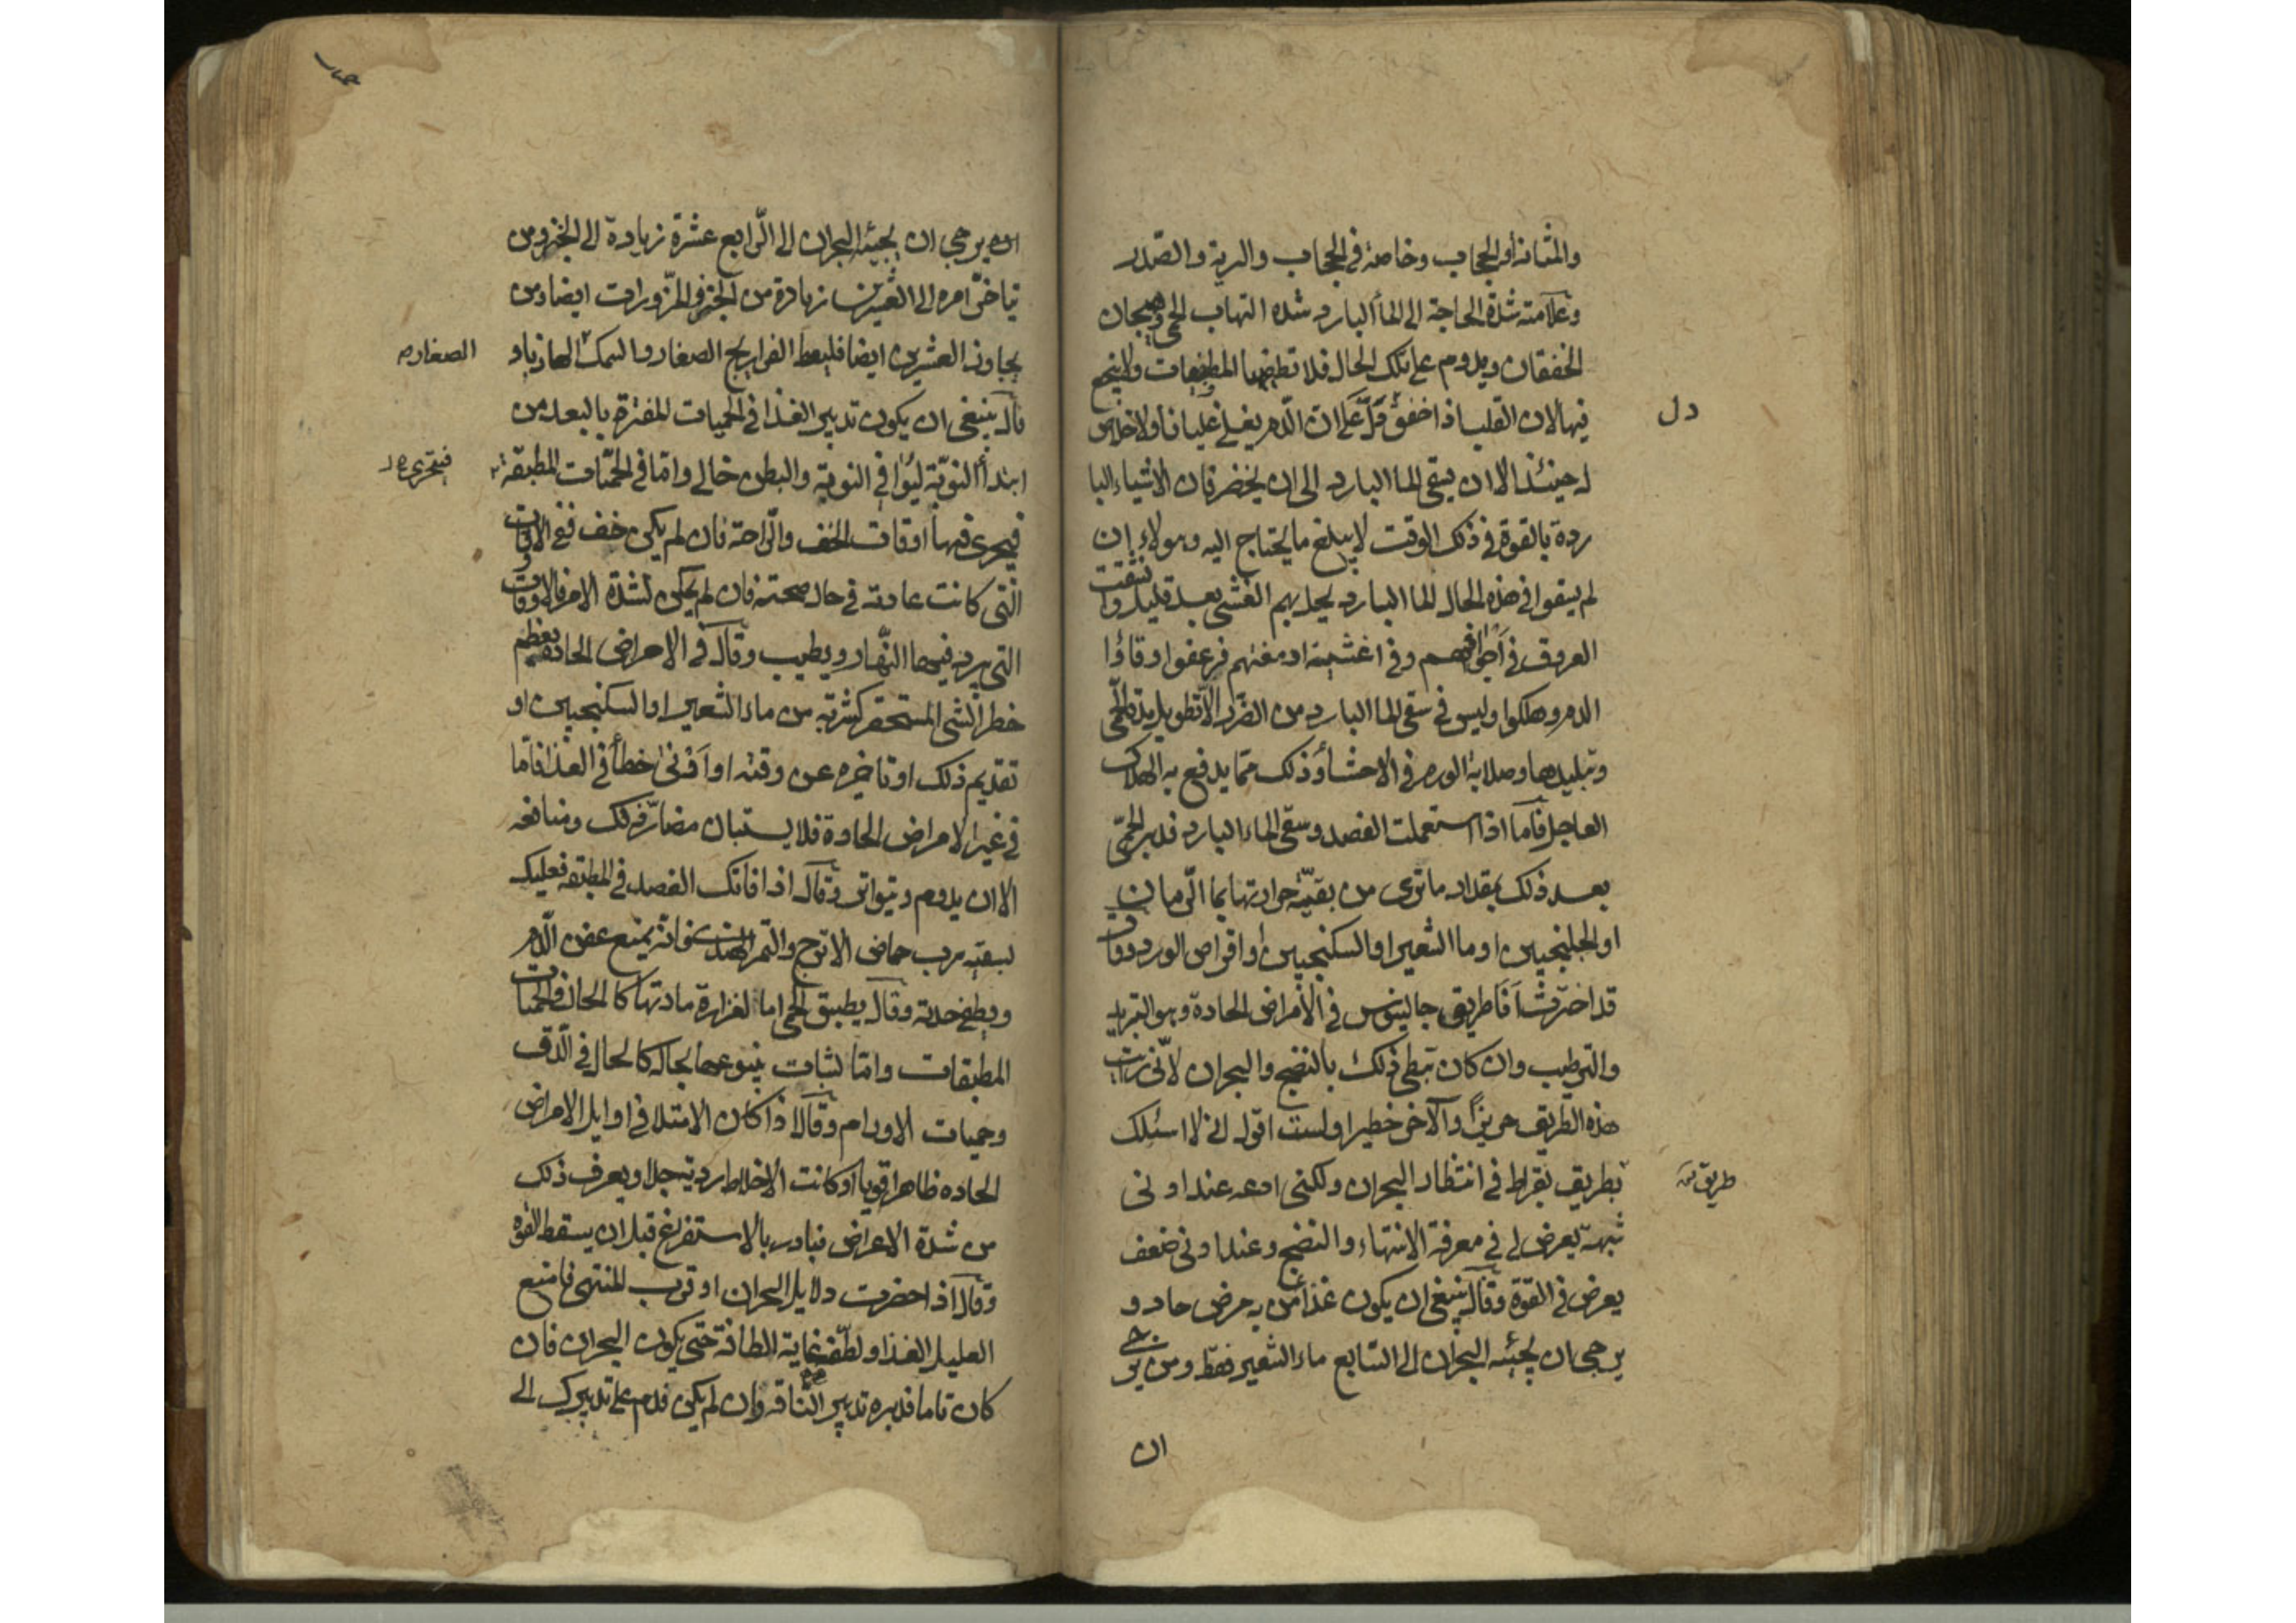 والمثانة أو الحجاب وخاصة في الحجاب والرية والصّدر
وعلامته شدة الحاجة الى الماء البارد شدة التهاب الحمى وهيجان
الخفقان ويدوم على تلك الحال فلا تطفيها المطفيات ولا ينجح
فيها لان القلب اذا خفق دَلَّ عَلى ان الدم يغلي غليانا ولا خلاص
دل
له حينئذ الا ان يسقى الما البارد الى ان يخضر فان الاشياء البا
ردة بالقوة في ذلك الوقت لا يبلغ ما يحتاج اليه وهولاء إن
لم يسقوا في هذه الحال الما البارد يحل بهم الغشي بعد قليل وانشقت
العروق في أجوافهم وفي اغشية ادمغتهم فرعفوا وقاؤا
الدم وهلكوا وليس في سقي الما البارد من الضرر الا تطويل مدة الحمى
وتبليدها وصلابة الورم في الاحشاء وذلك مما يدفع به الهلاك
العاجل فاما اذا استعملت الفصد وسقي الماء البارد فدبر الحمّى
بعد ذلك بمقدار ما ترى من بقيّة حرارتها بما الرّمان
او الجلنجبين او ما الشعير او السكنجبين او اقراص الورد وقال
قد اخترت أنَا طريق جالينوس في الأمراض الحادة وهو التبريد
والترطيب وان كان يبطي ذلك بالنضج والبحران لأنّي رايت
هذه الطريق حريزًا والآخر خطيرا ولست اقول اني لا اسلك
بطريق بقراط في انتظار البحران ولكني ادعه عند ادنى
طريق
شبهة يعرض لي في معرفة الانتهاء والنضج وعند ادنى ضعف
يعرض في القوة وقال ينبغي ان يكون غذا من به مرض حاد و
يرجى ان يجيئه البحران الى السابع ماء الشعير فقط ومن ير
ان
ان يرجى ان يجيئه البحران الى الرّابع عشرة زيادة الى الخبز ومن
تاخّر امره الى العشرين زيادة من الخبز والمزّورات ايضا ومن
يجاوز العشرين ايضا فليعط الفراريج الصغار والسمك الهازباو
الصغار
قال ينبغي ان يكون تدبير الغذا في الحميات المفترة بالبعد من
ابتدأ النوبّة ليؤافي النوبة والبطن خالي وامّا في الحمّيات المطبقة
فيتحرى
فيتحرى فيها أوقات الخف والرّاحة فان لم يكن خف ففي الاوقات
الّتي كانت عادته في حال صحته فان لم يكن لشدة الامر فالاوقات
التي يبرد فيها النّهار ويطيب وقال في الامراض الحادة يعظم
خطر الشي المستحقر كشربة من ماء الشعير او السكنجبين او
تقديم ذلك او تاخيره عن وقته او أدنى خطأ في الغذا فامّا
في غير الامراض الحادة فلا يستبان مضارّ ذلك ومنافعه
الا ان يدوم ويتواتر وقال اذا فاتك الفصد في المطبقة فعليك
بسقيه برب حماض الاترج والتمر الهندي فانه يمنع عفن الدّم
ويطفي حدته وقال يطبق الحمى اما لغزارة مادتها كالحال في الحميات
المطبقات وامّا لثبات ينبوعها بحاله كالحال في الدّق
وحميات الاورام وقال اذا كان الامتلا في اوايل الامراض
الحاده ظاهرا قويا او كانت الاخلاط ردية جدا ويعرف ذلك
من شدة الاعراض فبادر بالاستفراغ قبل ان يسقط القوه
وقال اذا حضرت دلايل البحران او قرب المنتهى فامنع
العليل الغذا ولطّفه غاية اللطافة حتى يكون البحران فان
كان تاما فدبره تدبير النّاقه وان لم يكن فدم على تدبيرك الى